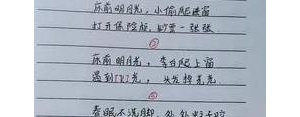 床前明月光，小偷爬进窗
打开保险柜，钞票一张张
②
床前明月光，李白爬上窗
遇到110，头发掉光光
③
春眠不洗脚，处处蚊子咬